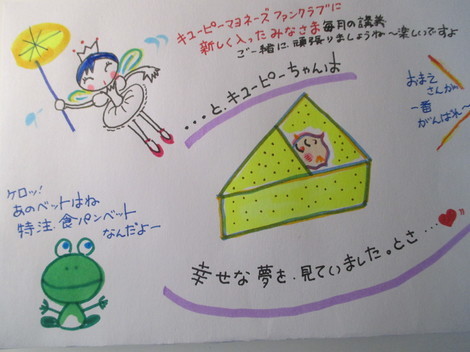 キューピーマヨネーズ ファンクラブに
新しく入ったみなさま毎月の講義
ご一緒に頑張りましょうね〜楽しいですよ
・・・と、キューピーちゃんは
おまえ
さんが
一番
がんばれ〜
ケロッ!
あのベットはね
特注、食パンベット
なんだよー
幸せな夢を、見ていました。とさ・・・・